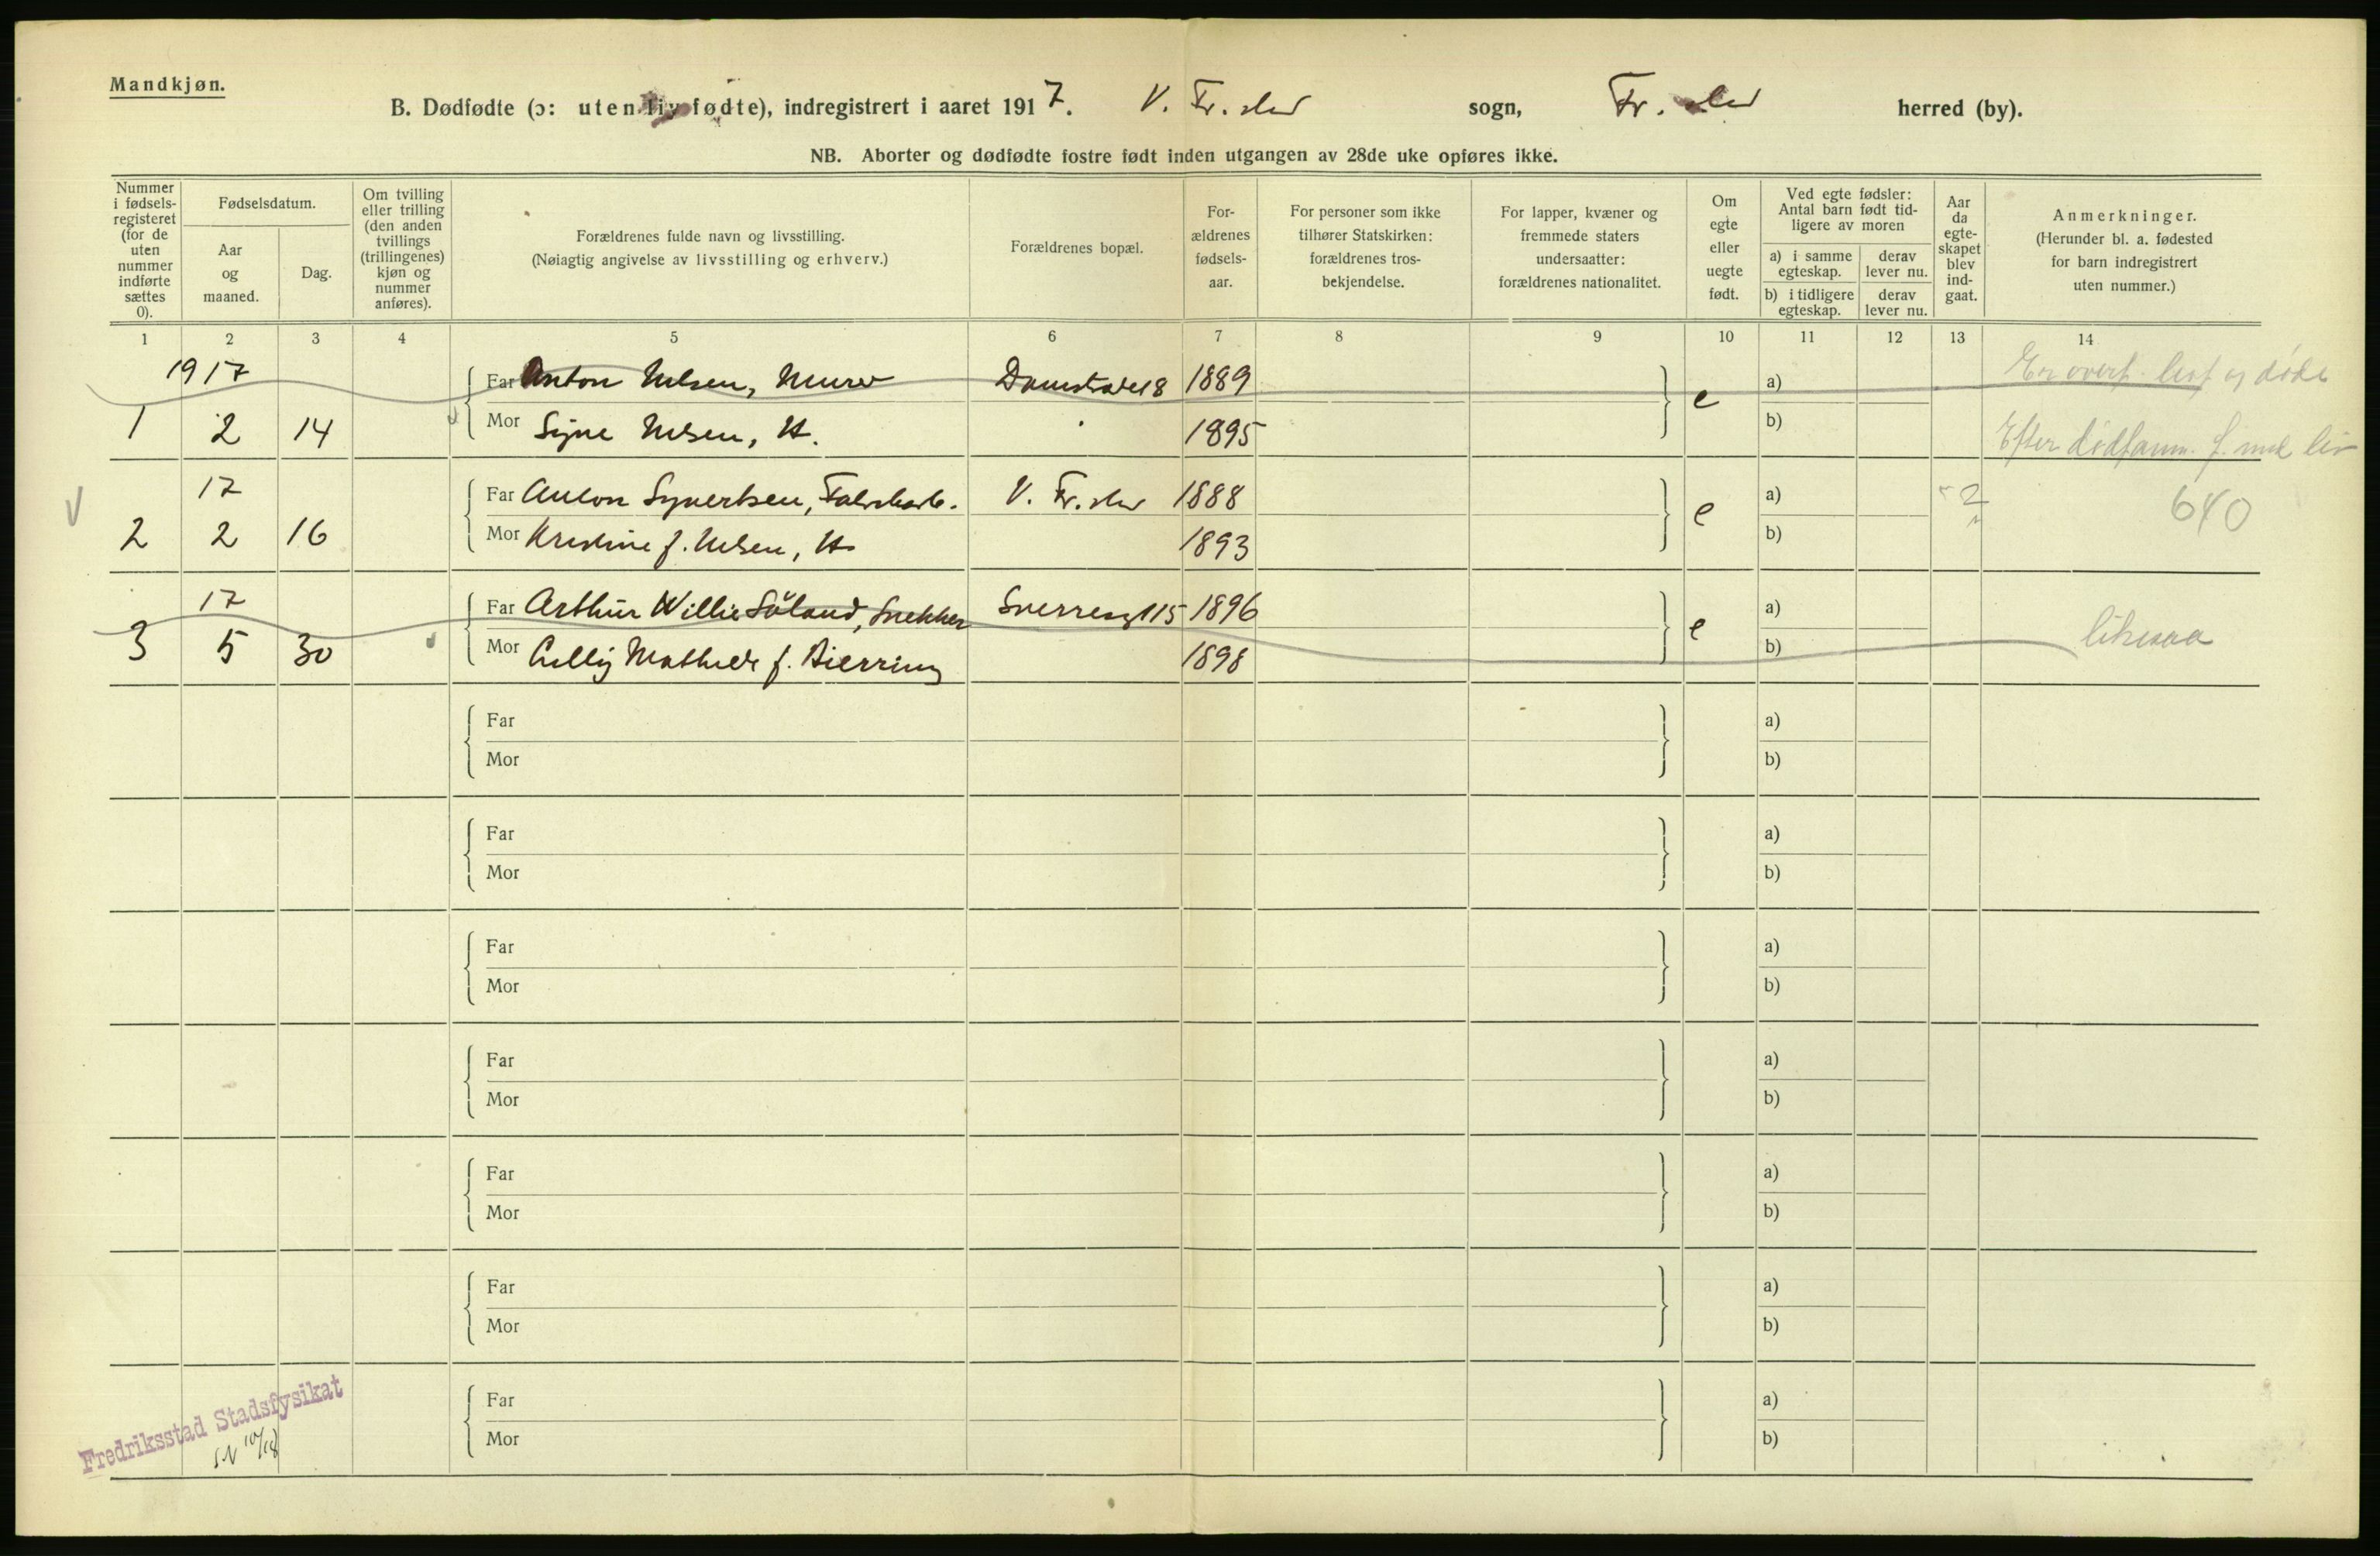 Mandkjøn.
B. Dødfødte (ɔ: uten liv fødte), indregistrert i aaret 1917. V. Fr.stad sogn, Fr.stad herred (by).
NB. Aborter og dødfødte fostre født inden utgangen av 28de uke opføres ikke.
Nummer i fødsels-registeret (for de uten nummer indførte sættes 0).
Fødselsdatum.
Aar og maaned.
Dag.
Om tvilling eller trilling (den anden tvillings (trillingenes) kjøn og nummer anføres).
Forældrenes fulde navn og livsstilling.
(Nøiagtig angivelse av livsstilling og erhverv.)
Forældrenes bopæl.
For-ældrenes fødsels-aar.
For personer som ikke tilhører Statskirken: forældrenes tros-bekjendelse.
For lapper, kvæner og fremmede staters undersaatter: forældrenes nationalitet.
Om egte eller uegte født.
Ved egte fødsler: Antal barn født tid-ligere av moren
a) i samme egteskap.
derav lever nu.
b) i tidligere egteskap.
derav lever nu.
Aar da egte-skapet blev ind-gaat.
Anmerkninger.
(Herunder bl. a. fødested for barn indregistrert uten nummer.)
1 2 3 4 5 6 7 8 9 10 11 12 13 14
1917 Far Anton Nilsen, Murer 1889 a) Er overf. og døde
1 2 14 Mor Signe Nilsen, H. 1895 e b) Efter f. med liv
17 Far Anton Syvertsen, V. Fr.stad 1888 a) 2 640
2 2 16 Mor Kristine f. Nilsen, H. 1893 e b)
17 Far Arthur Willie Söland, Snekker Sverresg 115 1896 a)
3 5 30 Mor Lilly Mathilde f. Bierring 1898 e b) likesaa
Far a)
Mor b)
Far a)
Mor b)
Far a)
Mor b)
Far a)
Mor b)
Far a)
Mor b)
Far a)
Mor b)
Far a)
Mor b)
Fredriksstad Stadsfysikat
10/18